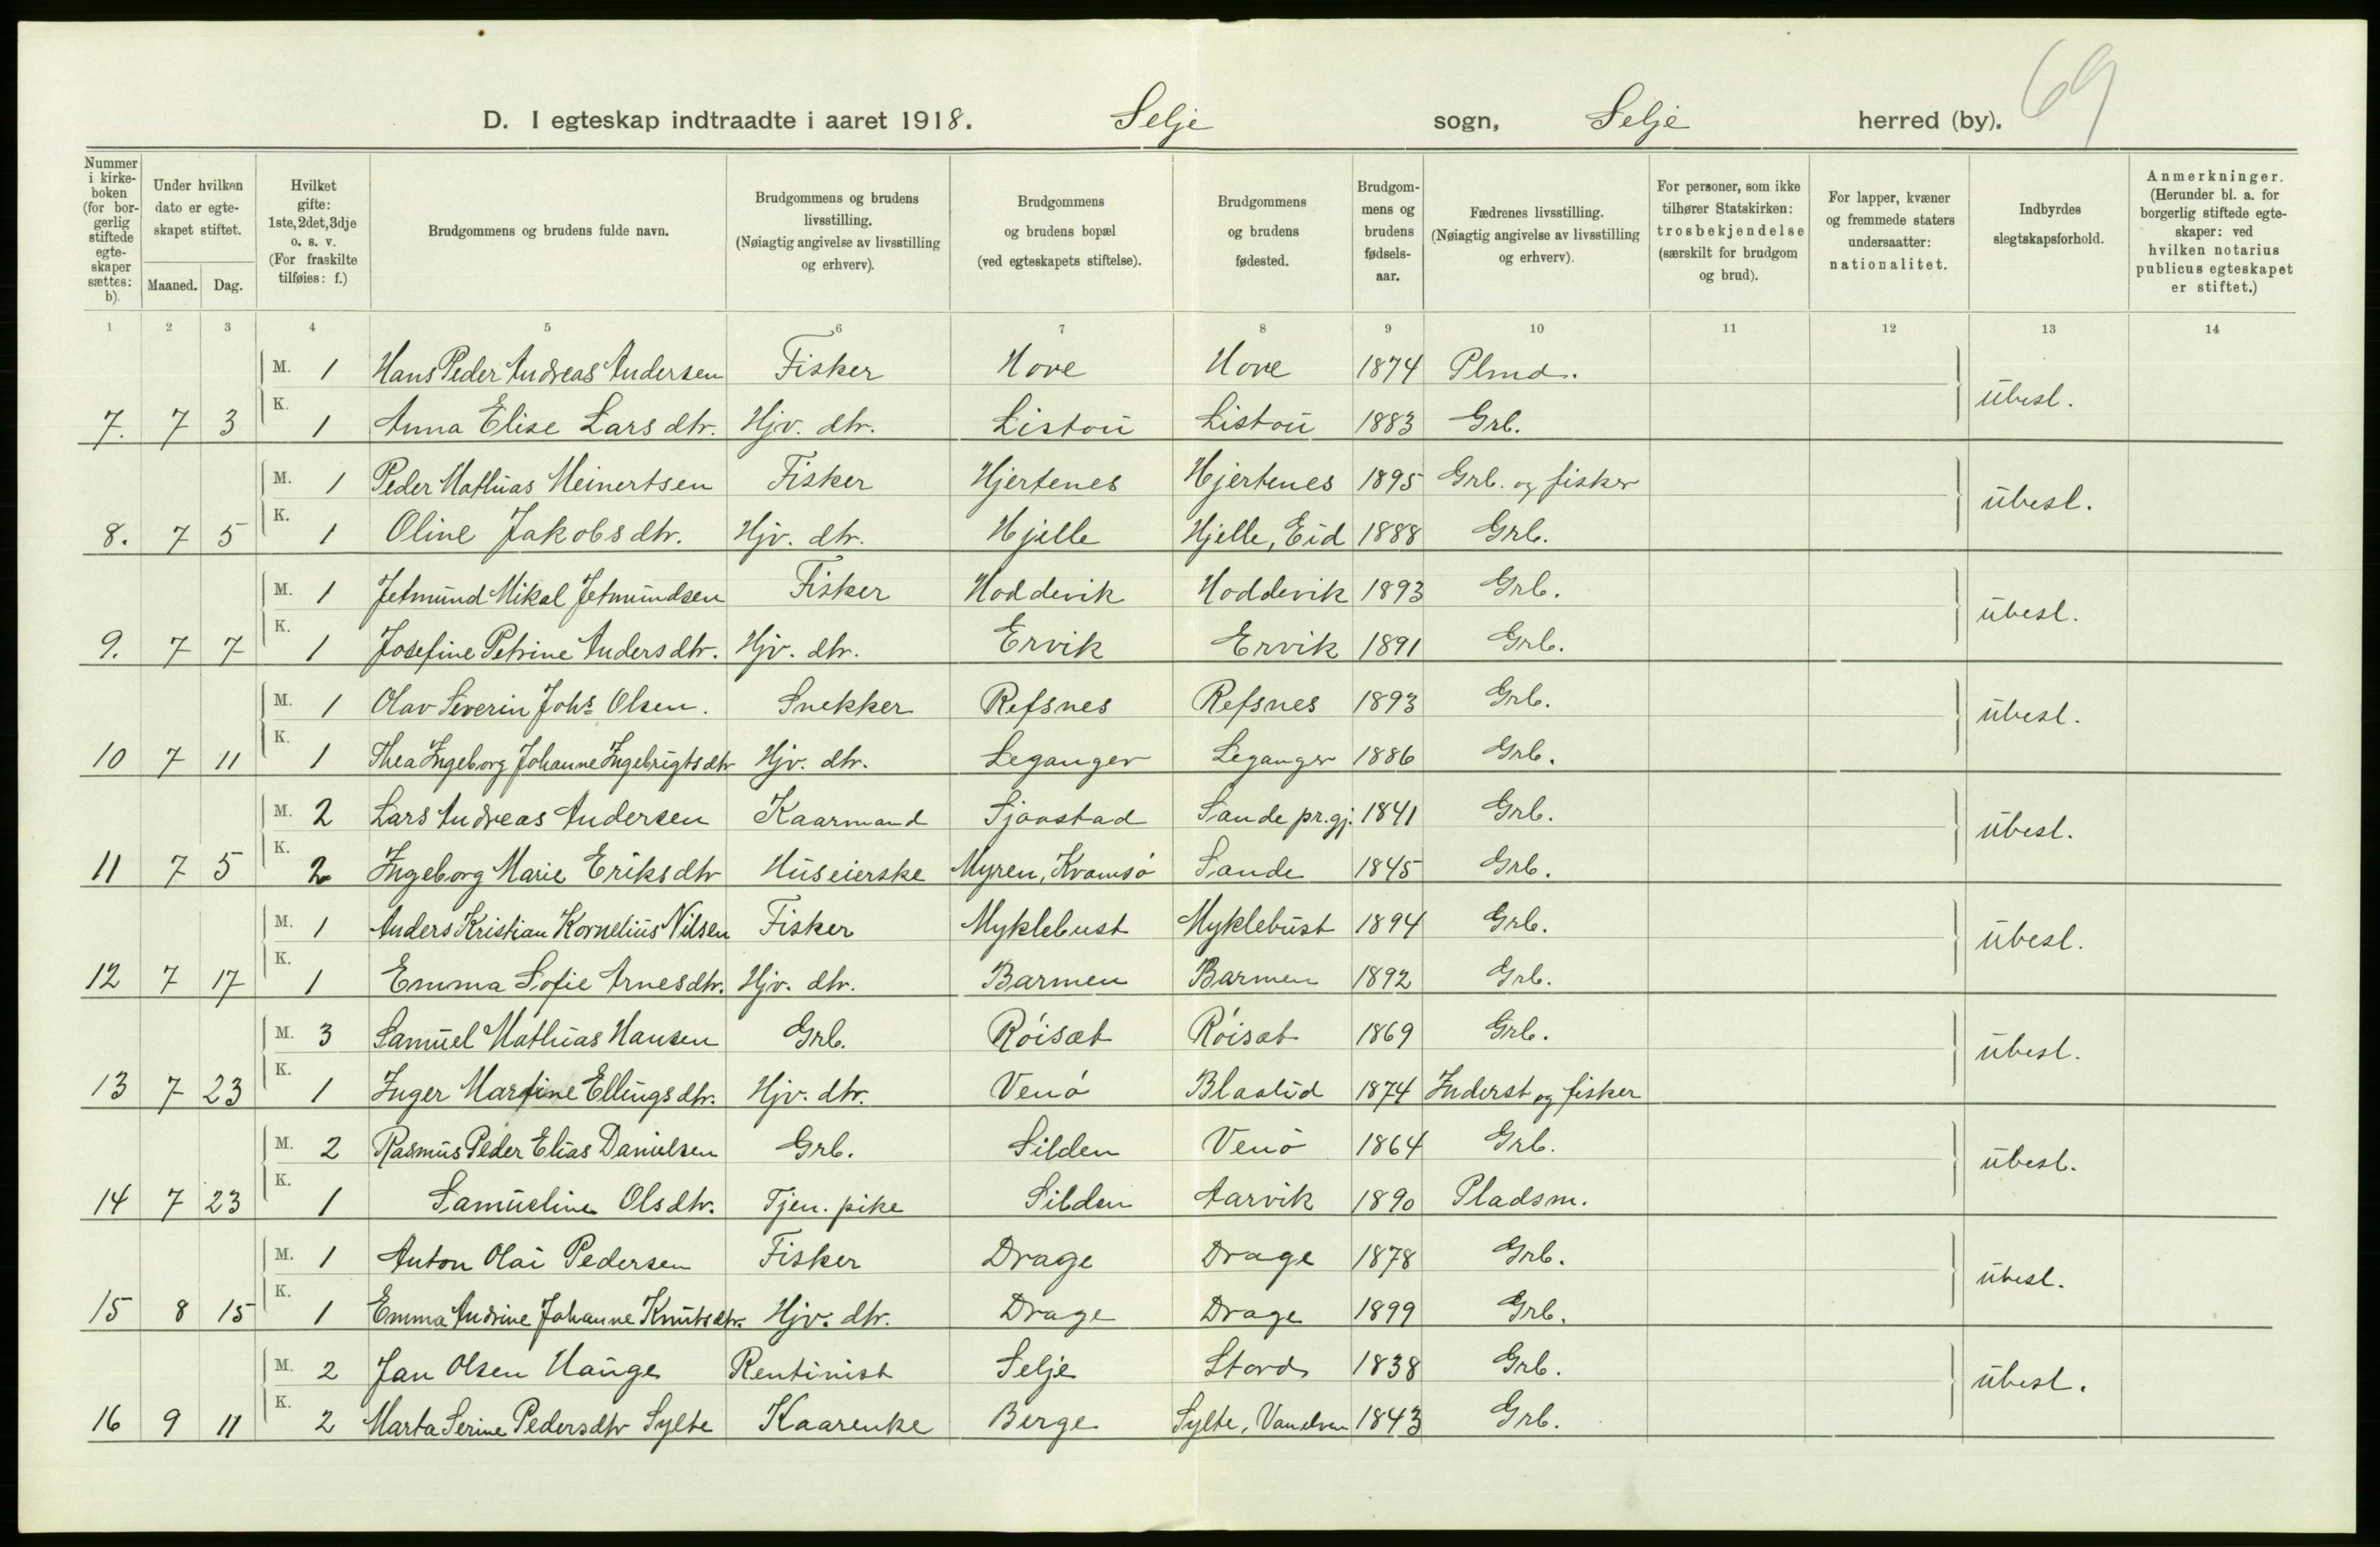 D. I egteskap indtraadte i aaret 1918. Selje sogn, Selje herred (by). 69
Nummer i kirkeboken (for borgerlig stiftede egteskaper sættes: b). Under hvilken dato er egteskapet stiftet. Maaned. Dag. Hvilket gifte: 1ste, 2det, 3dje o. s. v. (For fraskilte tilføies: f.) Brudgommens og brudens fulde navn. Brudgommens og brudens livsstilling. (Nøiagtig angivelse av livsstilling og erhverv). Brudgommens og brudens bopæl (ved egteskapets stiftelse). Brudgommens og brudens fødested. Brudgommens og brudens fødselsaar. Fædrenes livsstilling. (Nøiagtig angivelse av livsstilling og erhverv). For personer, som ikke tilhører Statskirken: trosbekjendelse (særskilt for brudgom og brud). For lapper, kvæner og fremmede staters undersaatter: nationalitet. Indbyrdes slegtskapsforhold. Anmerkninger. (Herunder bl. a. for borgerlig stiftede egteskaper: ved hvilken notarius publicus egteskapet er stiftet.)
1 2 3 4 5 6 7 8 9 10 11 12 13 14
M. 1 Hans Peder Andreas Andersen Fisker Hove Hove 1874 Plmd.
7. 7 3 K. 1 Anna Elise Larsdtr. Hjv. dtr. Listou Listou 1883 Grb. ubesl.
M. 1 Peder Mathias Meinertsen Fisker Hjertenes Hjertenes 1895 Grb. og fisker
8. 7 5 K. 1 Oline Jakobsdtr. Hjv. dtr. Hjelle Hjelle, Eid 1888 Grb. ubesl.
M. 1 Jetmund Mikal Jetmundsen Fisker Hoddevik Hoddevik 1893 Grb.
9. 7 7 K. 1 Josefine Petrine Andersdtr. Hjv. dtr. Ervik Ervik 1891 Grb. ubesl.
M. 1 Olav Severin Johs Olsen. Snekker Refsnes Refsnes 1893 Grb.
10 7 11 K. 1 Thea Ingeborg Johanne Ingebrigtsdtr Hjv. dtr. Leganger Leganger 1886 Grb. ubesl.
M. 2 Lars Andreas Andersen Kaarmand Sjaastad Sande pr.gj. 1841 Grb.
11 7 5 K. 2 Ingeborg Marie Eriksdtr Huseierske Myren, Kvamsö Sande 1845 Grb. ubesl.
M. 1 Anders Kristian Kornelius Nilsen Fisker Myklebust Myklebust 1894 Grb.
12 7 17 K. 1 Emma Sofie Arnesdtr. Hjv. dtr. Barmen Barmen 1892 Grb. ubesl.
M. 3 Samuel Mathias Hansen Grb. Röisæt Röisæt 1869 Grb.
13 7 23 K. 1 Inger Martine Ellingsdtr. Hjv. dtr. Venö Blaalid 1874 Inderst og fisker ubesl.
M. 2 Rasmus Peder Elias Danielsen Grb. Silden Venö 1864 Grb.
14 7 23 K. 1 Samueline Olsdtr. Tjen. pike Silden Aarvik 1890 Pladsm. ubesl.
M. 1 Anton Olai Pedersen Fisker Drage Drage 1878 Grb.
15 8 15 K. 1 Emma Andrine Johanne Knutsdtr. Hjv. dtr. Drage Drage 1899 Grb. ubesl.
M. 2 Jan Olsen Hauge Rentinist Selje Stord 1838 Grb.
16 9 11 K. 2 Marta Serine Pedersdtr Sylte Kaarenke Berge Sylte, Vanelven 1843 Grb. ubesl.